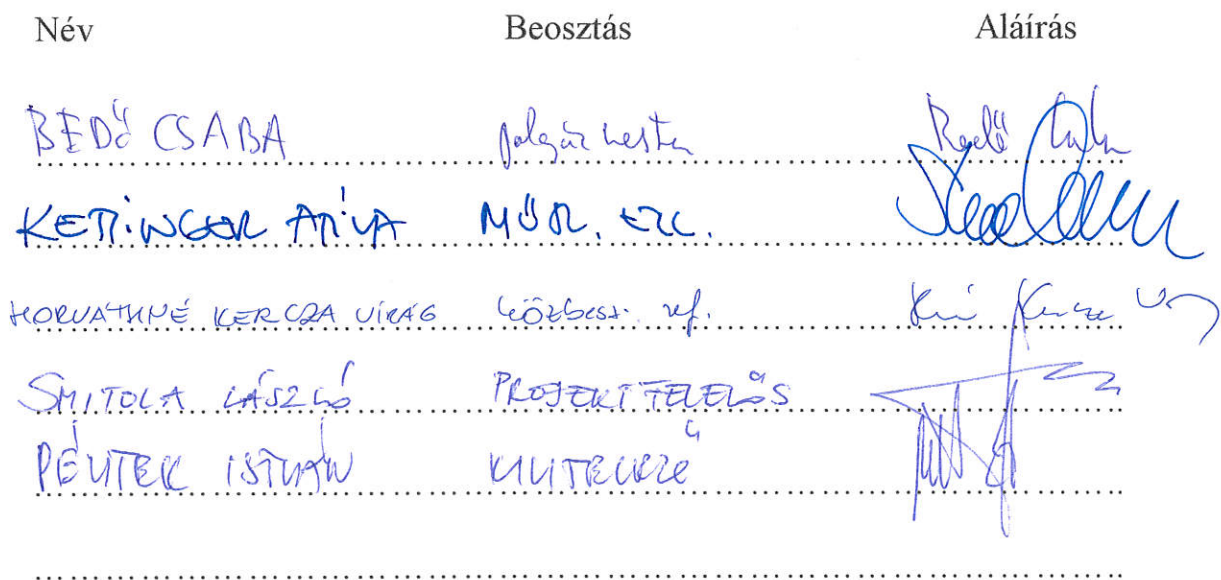 Név Beosztás Aláírás
BEDŐ CSABA polgármester Bedő Csaba
KETTINGER ATTILA MŰSZ. ELL.
HORVÁTHNÉ KERCZA VIRÁG közbesz. ref.
SMITOLA LÁSZLÓ PROJEKTFELELŐS
PÉNTEK ISTVÁN KIVITELEZŐ